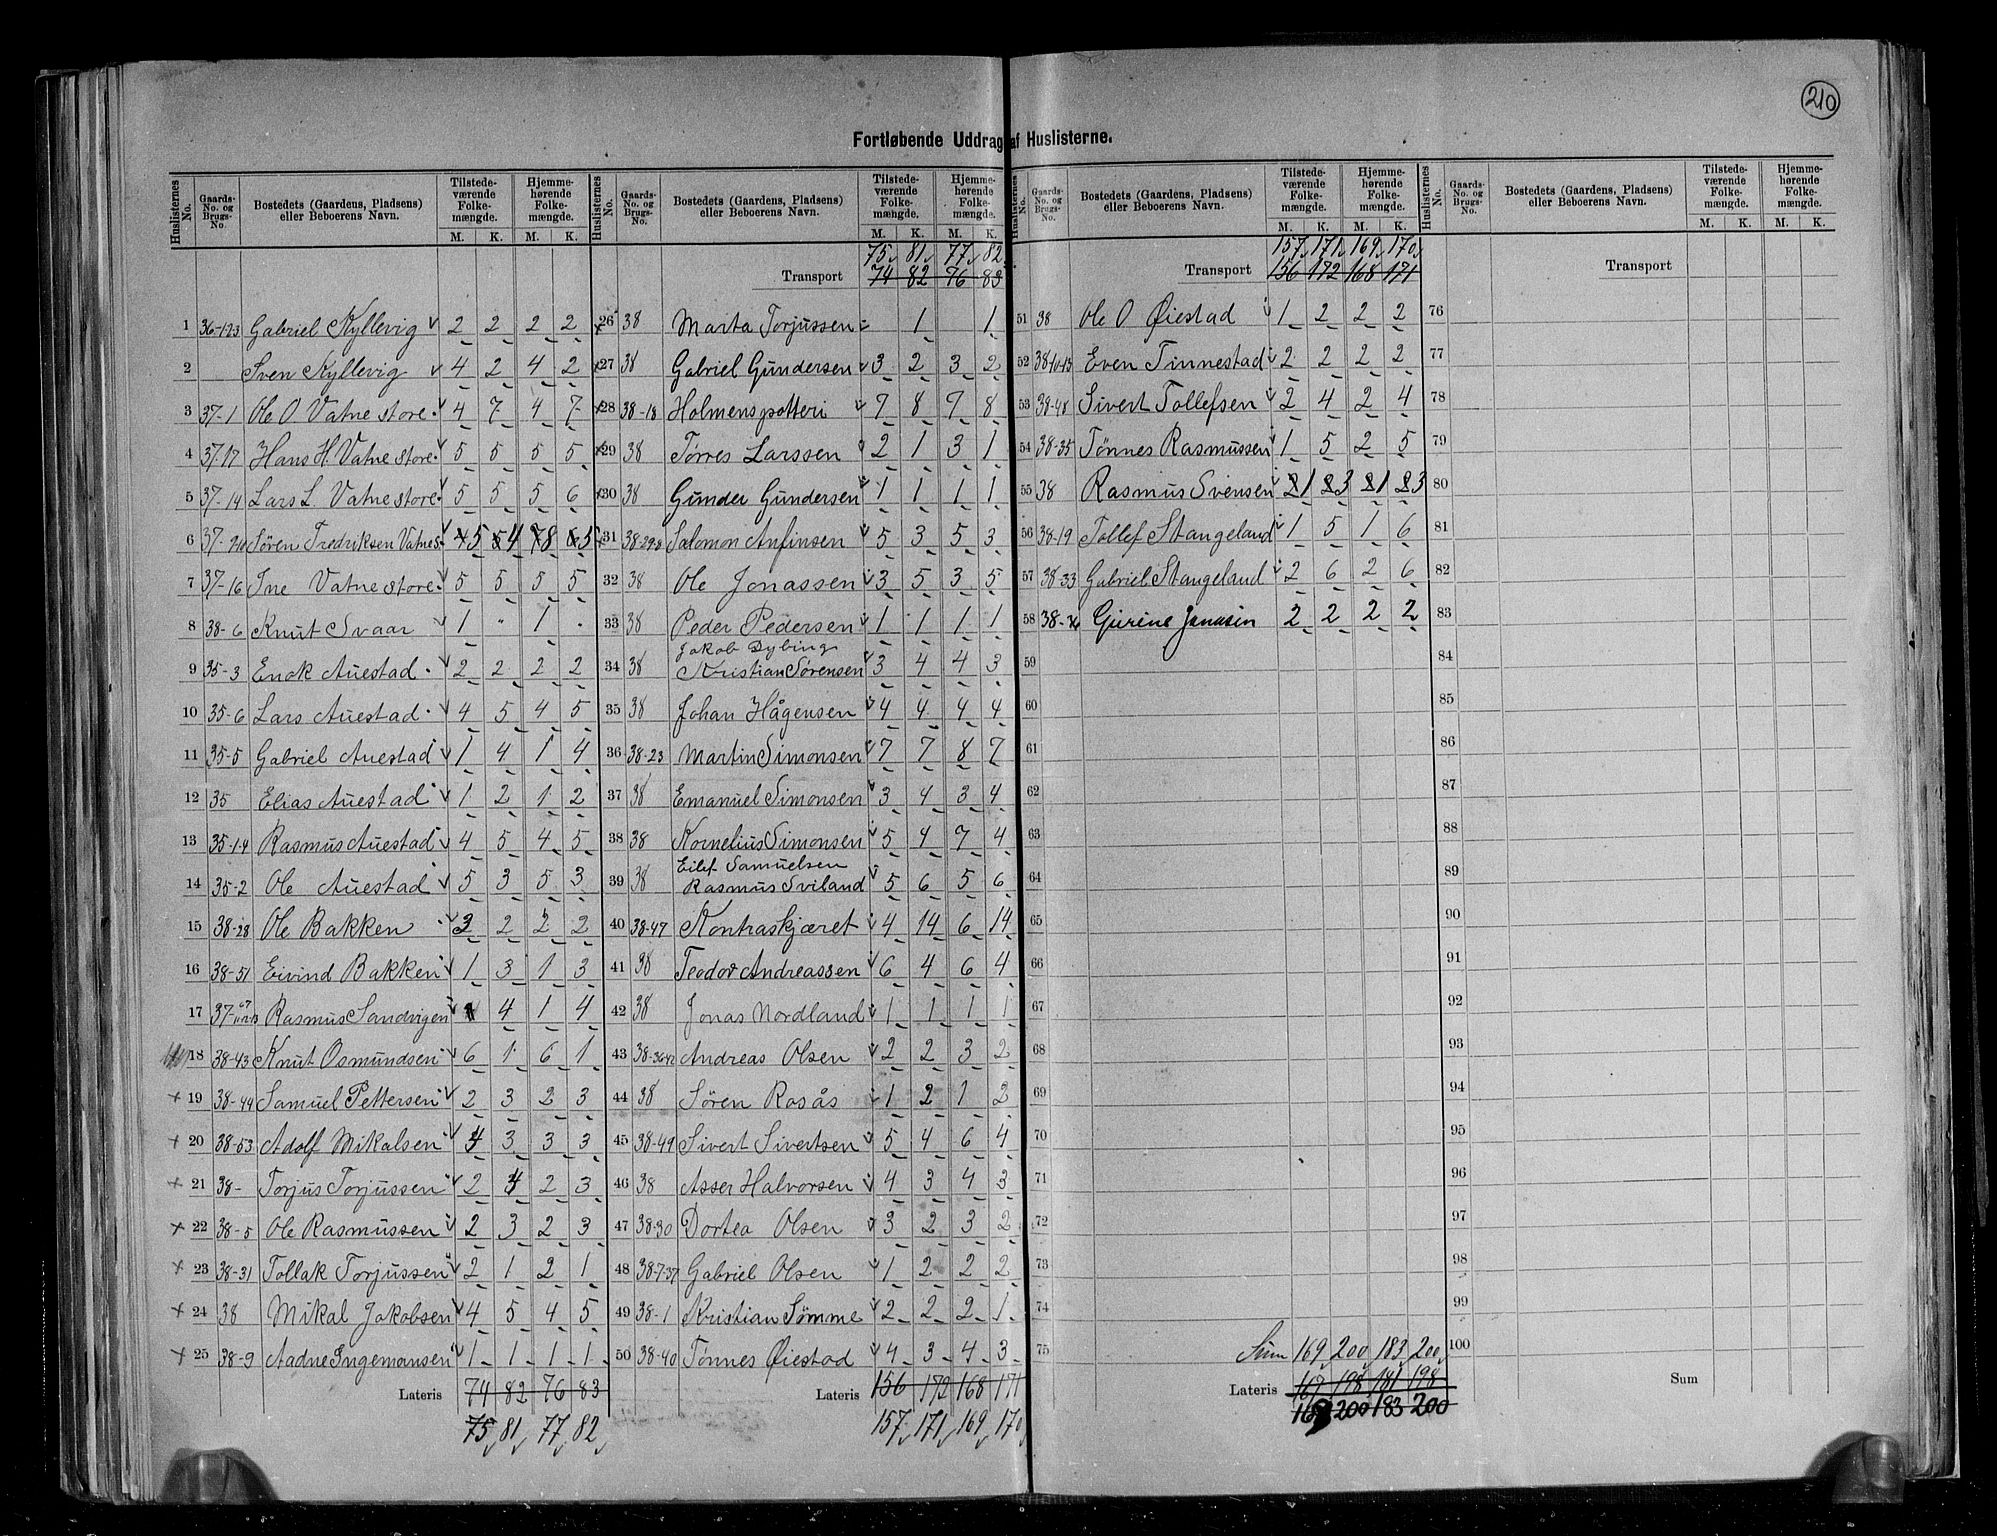 210
Fortløbende Uddrag af Huslisterne.
Huslisternes No. Gaards-No. og Brugs-No. Bostedets (Gaardens, Pladsens) eller Beboerens Navn. Tilstedeværende Folkemængde. M. K. Hjemmehørende Folkemængde. M. K.
1 36-1 2 3 Gabriel Kyllevig 2 2 2 2
2 Sven Kyllevig 4 2 4 2
3 37-1 Ole O. Vatne store 4 7 4 7
4 37-17 Hans H. Vatne store 5 5 5 5
5 37-14 Lars L. Vatne store 5 5 5 6
6 37- Søren Fredriksen Vatne s. 5 4 8 5
7 37-16 Ine Vatne store 5 5 5 5
8 38-6 Knut Svaar 1 " 1 "
9 35-3 Enok Auestad 2 2 2 2
10 35-6 Lars Auestad 4 5 4 5
11 35-5 Gabriel Auestad 1 4 1 4
12 35 Elias Auestad 1 2 1 2
13 35-1-4 Rasmus Auestad 4 5 4 5
14 35-2 Ole Auestad 5 3 5 3
15 38-28 Ole Bakken 2 2 2 2
16 38-51 Eivind Bakken 1 3 1 3
17 37- Rasmus Sandvigen 1 4 1 4
18 38-43 Knut Osmundsen 6 1 6 1
× 19 38-44 Samuel Pettersen 2 3 2 3
× 20 38-53 Adolf Mikalsen 4 3 3 3
× 21 38- Torjus Torjussen 2 3 2 3
× 22 38-5 Ole Rasmussen 2 3 2 3
× 23 38-31 Tollak Torjussen 2 1 2 1
× 24 38 Mikal Jakobsen 4 5 4 5
× 25 38-9 Aadne Ingemansen 1 1 1 1
Lateris 74 82 76 83
75 81 77 82
Huslisternes No. Gaards-No. og Brugs-No. Bostedets (Gaardens, Pladsens) eller Beboerens Navn. Tilstedeværende Folkemængde. M. K. Hjemmehørende Folkemængde. M. K.
75 81 77 82
Transport 74 82 76 83
×26 38 Marta Torjussen - 1 1
×27 38 Gabriel Gundersen 3 2 3 2
×28 38-18 Holmenspotteri 7 8 7 8
×29 38 Tørres Larssen 2 1 3 1
×30 38 Gunder Gundersen 1 1 1 1
×31 38-29-8 Salomon Anfinsen 5 3 5 3
32 38 Ole Jonassen 3 5 3 5
33 38 Peder Pedersen 1 1 1 1
Jakob Dybing
34 38 Kristian Sørensen 3 4 4 3
35 38 Johan Hågensen 4 4 4 4
36 38-23 Martin Simonsen 7 7 8 7
37 38 Emanuel Simonsen 3 4 3 4
38 38 Kornelius Simonsen 5 4 7 4
Eilef Samuelsen
39 38 Rasmus Sviland 5 6 5 6
40 38-47 Kontraskjæret 4 14 6 14
41 38 Teodor Andreassen 6 4 6 4
42 38 Jonas Nordland 1 1 1 1
43 38-36-42 Andreas Olsen 2 2 3 2
44 38 Søren Rosås 1 2 1 2
45 38-49 Sivert Sivertsen 5 4 6 4
46 38 Asser Halvorsen 4 3 4 3
47 38-30 Dortea Olsen 3 2 3 2
48 38-7-37 Gabriel Olsen 1 2 2 2
49 38-1 Kristian Sømme 2 2 2 1
50 38-40 Tønnes Øiestad 4 3 4 3
Lateris 156 172 168 171
157 171 169 170
Huslisternes No. Gaards-No. og Brugs-No. Bostedets (Gaardens, Pladsens) eller Beboerens Navn. Tilstedeværende Folkemængde. M. K. Hjemmehørende Folkemængde. M. K.
157 171 169 170
Transport 156 172 168 171
51 38 Ole O Øiestad 1 2 2 2
52 38-10-13 Even Tinnestad 2 2 2 2
53 38-48 Sivert Tollefsen 2 4 2 4
54 38-35 Tønnes Rasmussen 1 5 2 5
55 38 Rasmus Svensen 1 3 1 3
56 38-19 Tollef Stangeland 1 5 1 6
57 38-33 Gabriel Stangeland 2 6 2 6
58 38-26 Gurine Jonasen 2 2 2 2
59
60
61
62
63
64
65
66
67
68
69
70
71
72
73
74
75 Sum 169 200 183 200
Lateris 167 198 181 198
169 200 183 200
Huslisternes No. Gaards-No. og Brugs-No. Bostedets (Gaardens, Pladsens) eller Beboerens Navn. Tilstedeværende Folkemængde. M. K. Hjemmehørende Folkemængde. M. K.
Transport
76
77
78
79
80
81
82
83
84
85
86
87
88
89
90
91
92
93
94
95
96
97
98
99
100
Sum